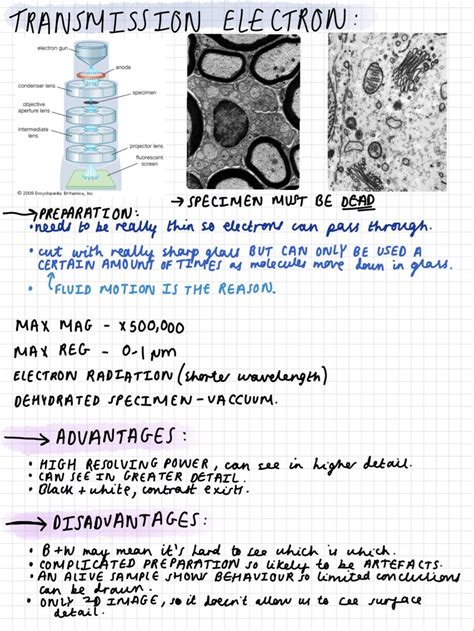 TRANSMISSION ELECTRON:
electron gun
anode
condenser lens
specimen
objective
aperture lens
intermediate
lens
projector lens
fluorescent
screen
© 2008 Encyclopædia Britannica, Inc.
→ SPECIMEN MUST BE DEAD
→ PREPARATION:
• needs to be really thin so electrons can pass through.
• cut with really sharp glass BUT CAN ONLY BE USED A
CERTAIN AMOUNT OF TIMES as molecules move down in glass.
• FLUID MOTION IS THE REASON.
MAX MAG - x500,000
MAX REG - 0.1 nm
ELECTRON RADIATION (shorter wavelength)
DEHYDRATED SPECIMEN - VACCUUM.
→ ADVANTAGES:
• HIGH RESOLVING POWER, can see in higher detail.
• CAN SEE IN GREATER DETAIL.
• Black + white, contrast exists.
→ DISADVANTAGES:
• B+W may mean it's hard to see which is which.
• COMPLICATED PREPARATION so likely to be ARTEFACTS.
• AN ALIVE SAMPLE SHOWS BEHAVIOUR so limited conclusions
can be drawn.
• ONLY 2D IMAGE, so it doesn't allow us to see surface
detail.